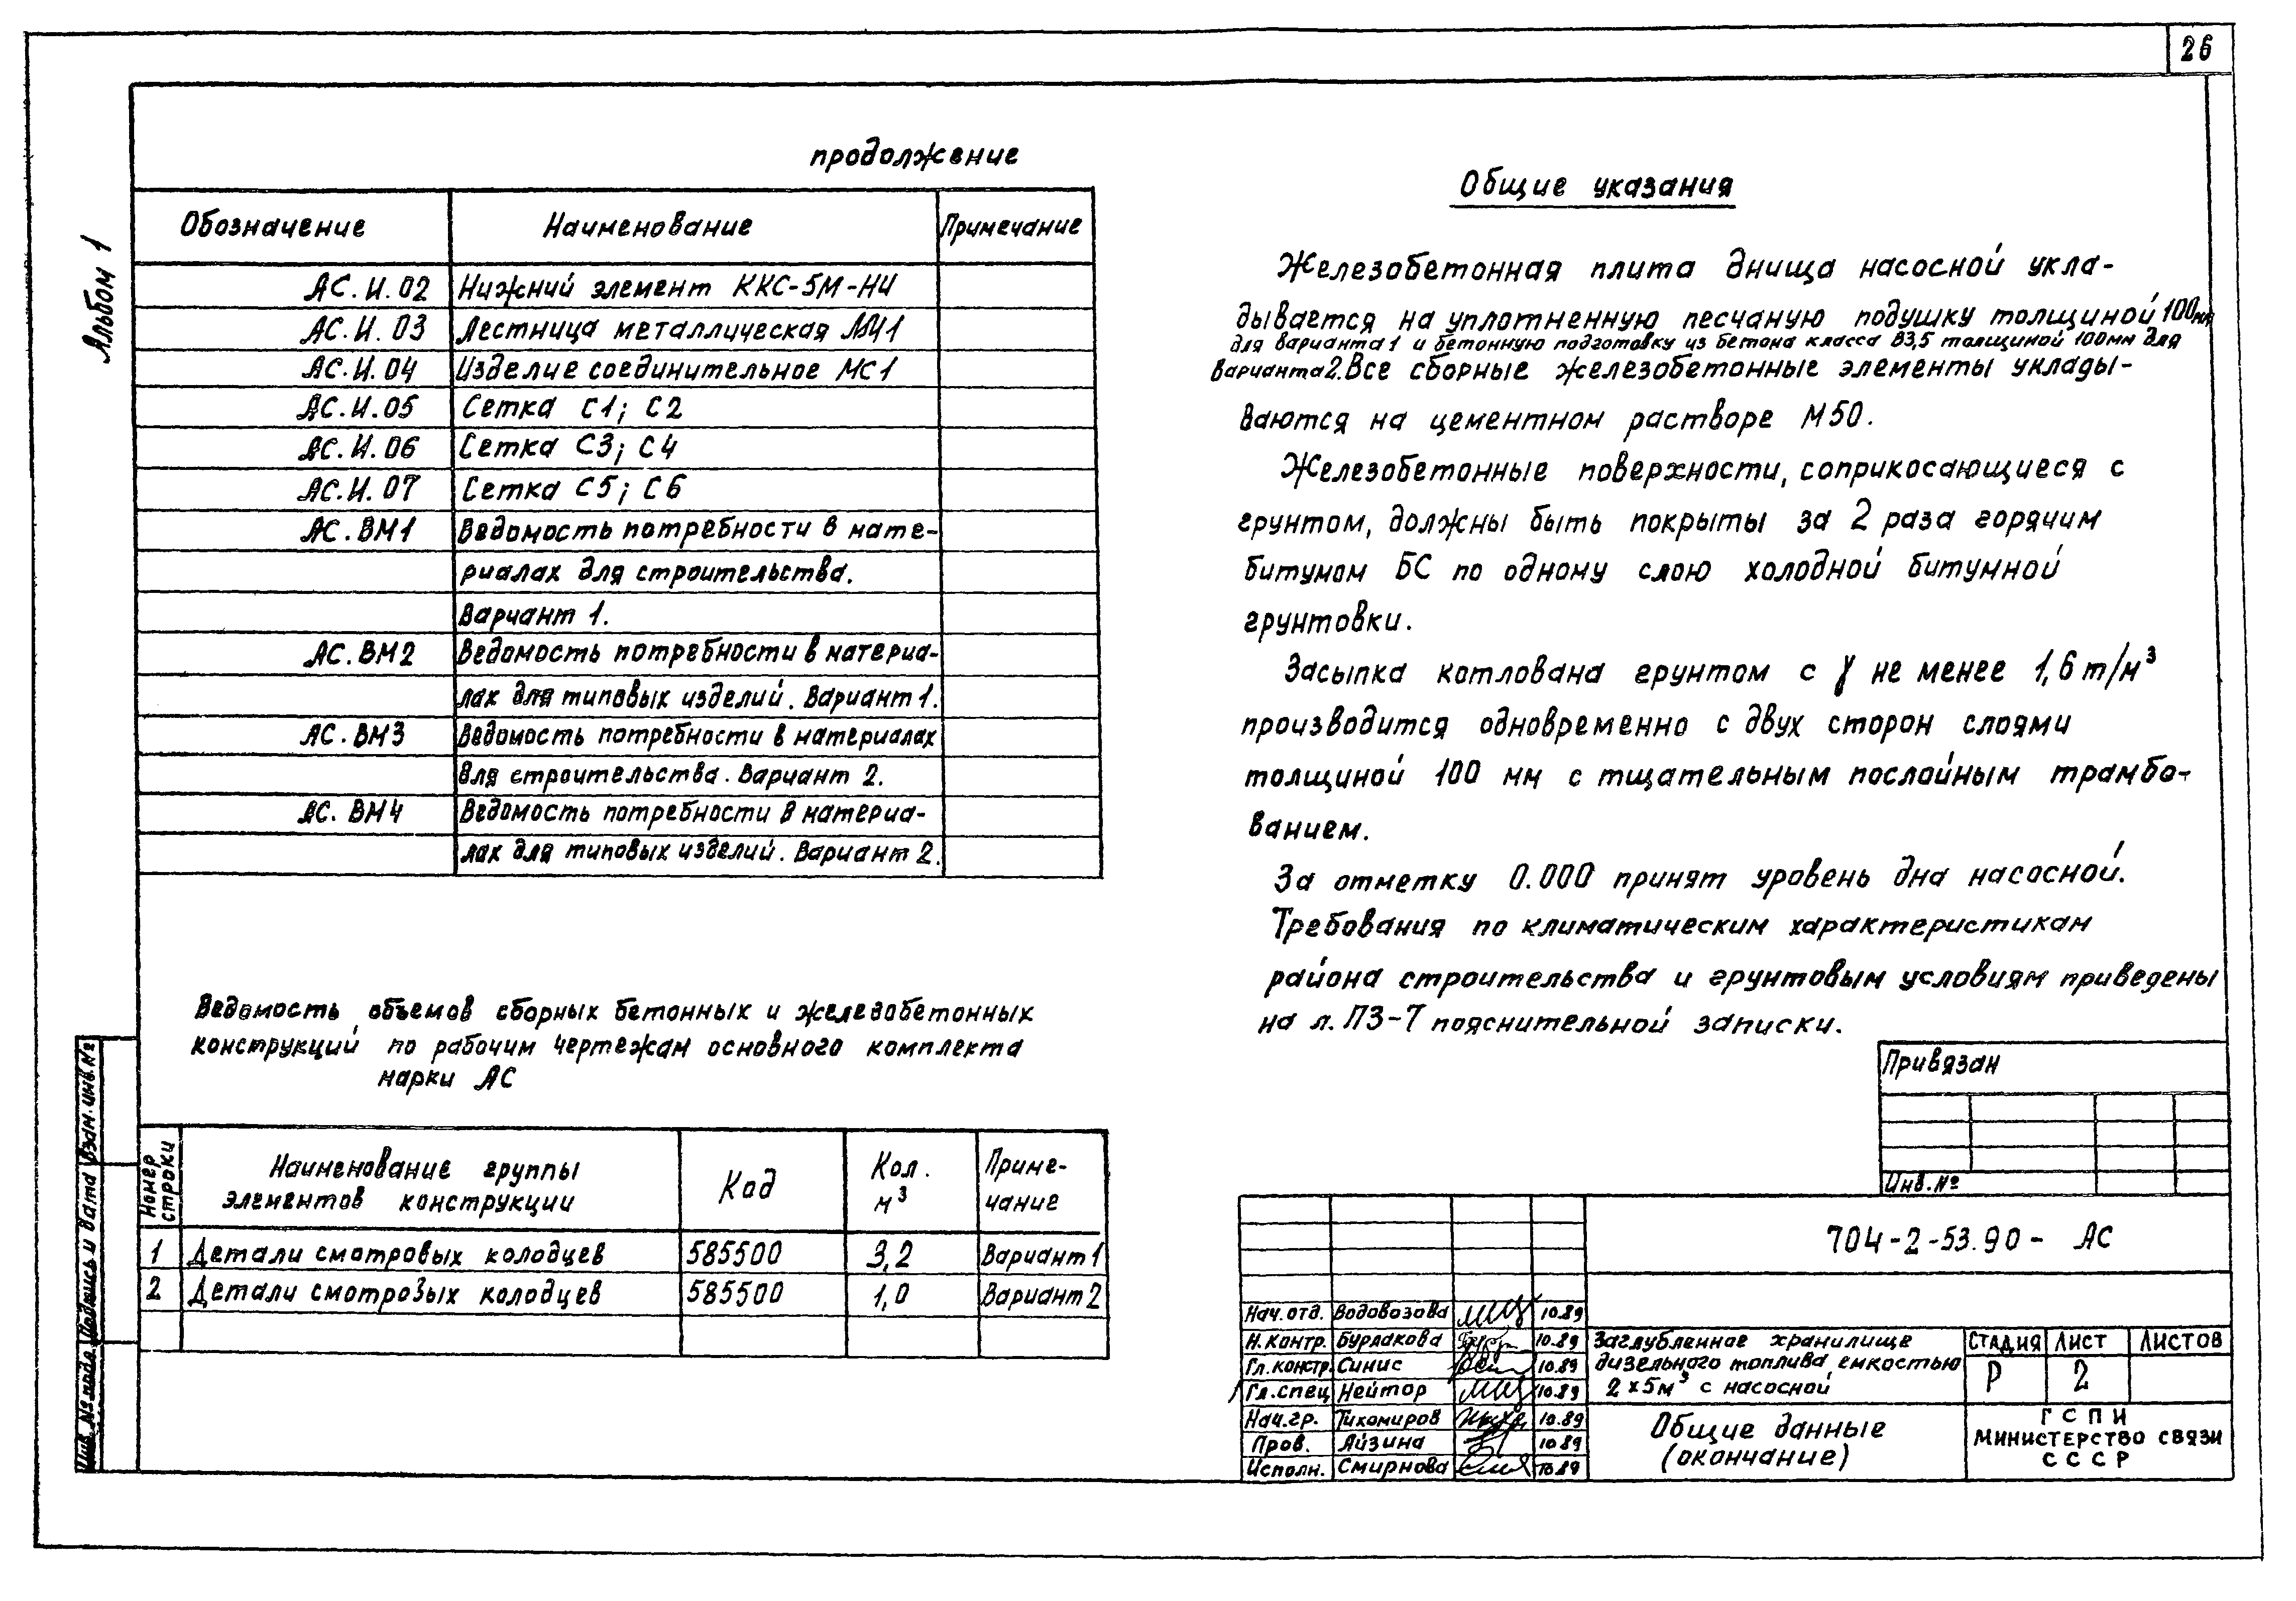 26
Альбом 1
продолжение
Обозначение Наименование Примечание
АС.И.02 Нижний элемент ККС-5М-НИ
АС.И.03 Лестница металлическая ЛМ1
АС.И.04 Изделие соединительное МС1
АС.И.05 Сетка С1; С2
АС.И.06 Сетка С3; С4
АС.И.07 Сетка С5; С6
АС.ВМ1 Ведомость потребности в мате-
риалах для строительства.
Вариант 1.
АС.ВМ2 Ведомость потребности в материа-
лах для типовых изделий. Вариант 1.
АС.ВМ3 Ведомость потребности в материалах
для строительства. Вариант 2.
АС.ВМ4 Ведомость потребности в материа-
лах для типовых изделий. Вариант 2.
Ведомость объемов сборных бетонных и железобетонных
конструкций по рабочим чертежам основного комплекта
марки АС
Номер строки Наименование группы элементов конструкции Код Кол. м³ Приме-чание
1 Детали смотровых колодцев 585500 3,2 Вариант 1
2 Детали смотровых колодцев 585500 1,0 Вариант 2
Общие указания
Железобетонная плита днища насосной укла-
дывается на уплотненную песчаную подушку толщиной 100мм
для варианта 1 и бетонную подготовку из бетона класса В3,5 толщиной 100мм для
варианта 2. Все сборные железобетонные элементы уклады-
ваются на цементном растворе М50.
Железобетонные поверхности, соприкосающиеся с
грунтом, должны быть покрыты за 2 раза горячим
битумом БС по одному слою холодной битумной
грунтовки.
Засыпка котлована грунтом с γ не менее 1,6 т/м³
производится одновременно с двух сторон слоями
толщиной 100 мм с тщательным послойным трамбо-
ванием.
За отметку 0.000 принят уровень дна насосной.
Требования по климатическим характеристикам
района строительства и грунтовым условиям приведены
на л. ПЗ-7 пояснительной записки.
Привязан
Инв.№
704-2-53.90- АС
Нач.отд. Водовозова 10.89
Н.контр. Бурлакова 10.89
Гл.констр. Синис 10.89
Гл.спец Нейтор 10.89
Нач.гр. Тихомиров 10.89
Пров. Айзина 10.89
Исполн. Смирнова 10.89
Заглубленное хранилище
дизельного топлива емкостью
2х5м³ с насосной
Стадия Лист Листов
Р 2
Общие данные
(окончание)
ГСПИ
Министерство связи
СССР
Взам.инв.№
Подпись и дата
Инв.№ подл.